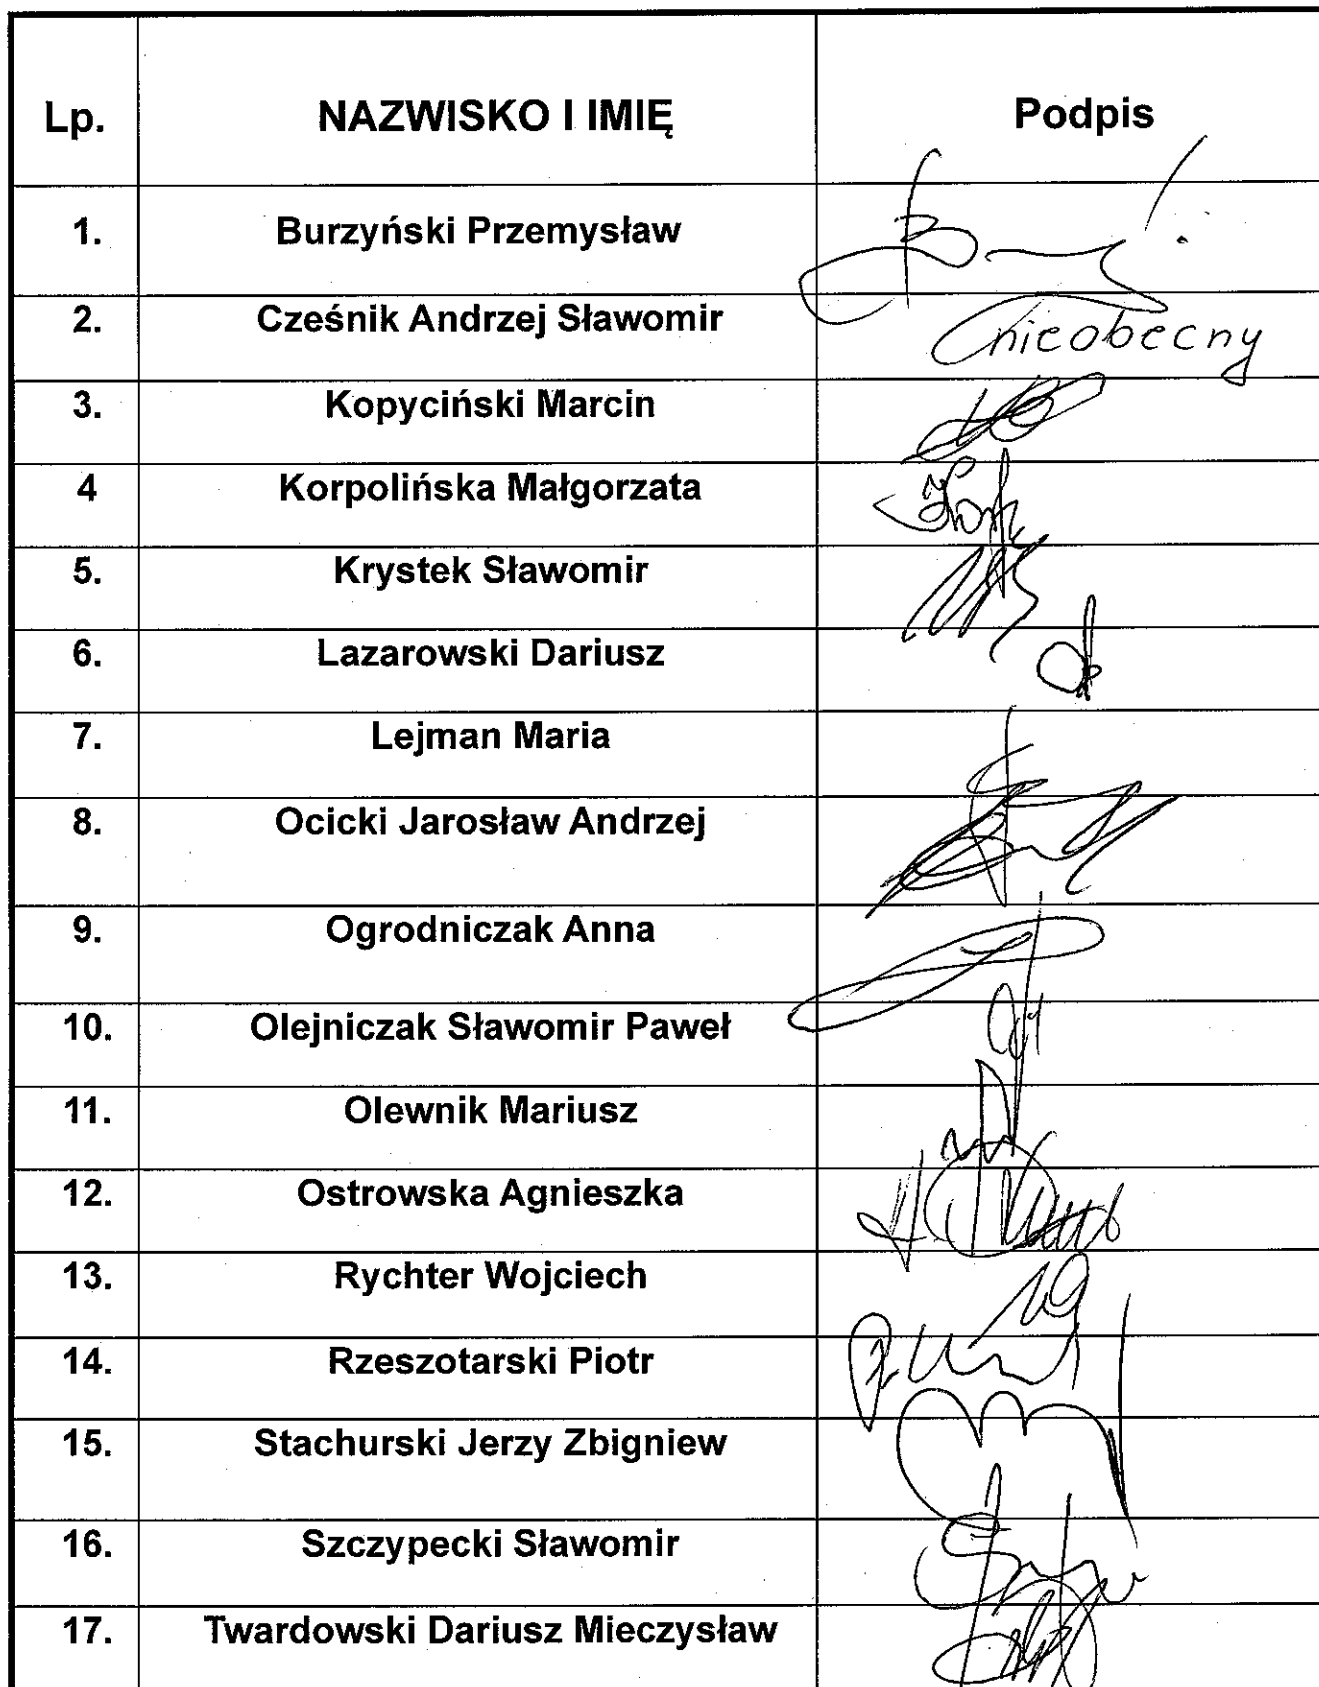 Lp. NAZWISKO I IMIĘ Podpis
1. Burzyński Przemysław
2. Cześnik Andrzej Sławomir nieobecny
3. Kopyciński Marcin
4 Korpolińska Małgorzata
5. Krystek Sławomir
6. Lazarowski Dariusz
7. Lejman Maria
8. Ocicki Jarosław Andrzej
9. Ogrodniczak Anna
10. Olejniczak Sławomir Paweł
11. Olewnik Mariusz
12. Ostrowska Agnieszka
13. Rychter Wojciech
14. Rzeszotarski Piotr
15. Stachurski Jerzy Zbigniew
16. Szczypecki Sławomir
17. Twardowski Dariusz Mieczysław